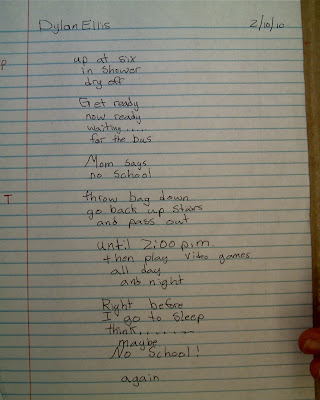 Dylan Ellis 2/10/10
P
up at six
in shower
dry off
Get ready
now ready
waiting....
for the bus
Mom says
no School
T
throw bag down
go back up stairs
and pass out
until 2:00 p.m.
then play video games
all day
and night
Right before
I go to sleep
think.......
maybe
No School!
again